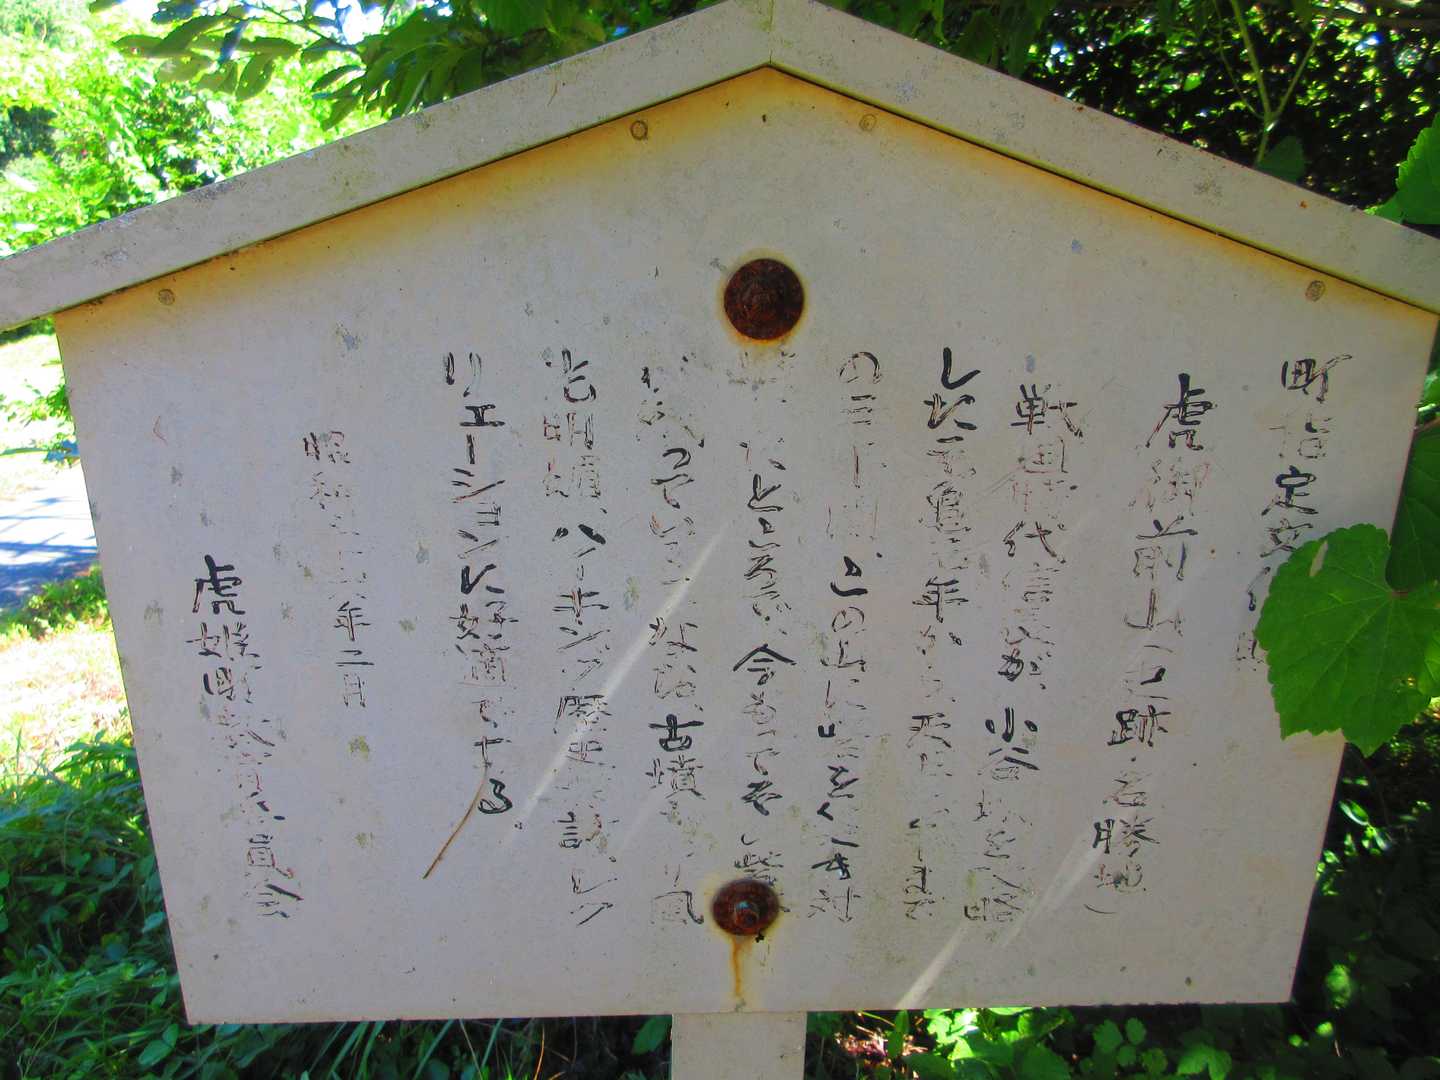 町指定文
虎御前山(史跡・名勝地)
戦国時代信長が、小谷城を攻略
した元亀年から天正
の三年間、この山に陣をしき対
したところで、今もってその
が残っている。なお、古墳もあり風
光明媚、ハイキング、歴史探訪、レク
リエーションに好適である。
昭和 年二月
虎姫町教育委員会